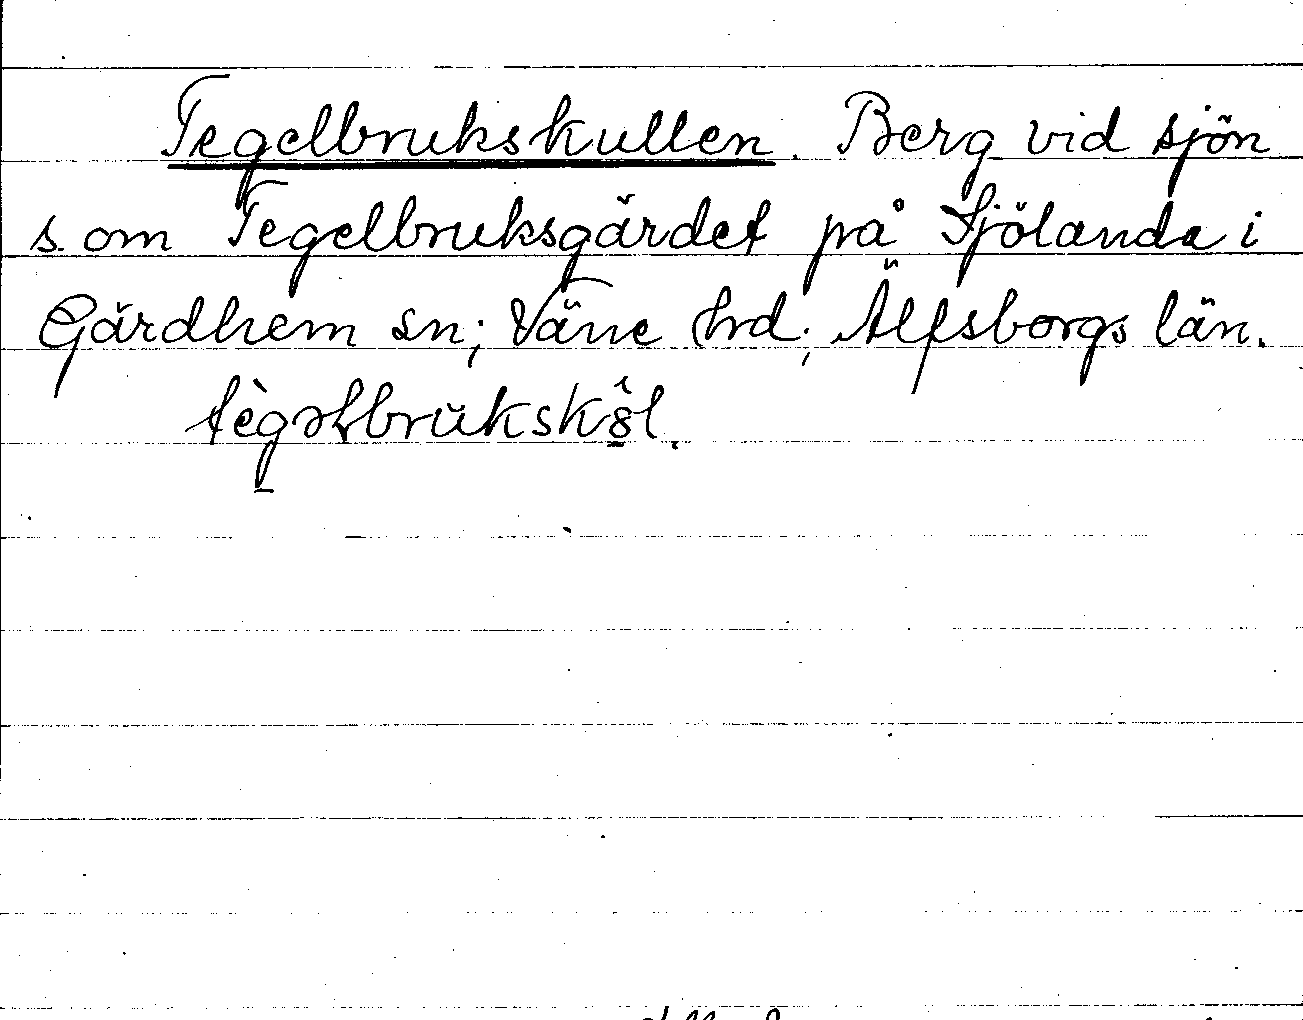 Tegelbrukskullen. Berg vid sjön
s. om Tegelbruksgärdet på Sjölanda i
Gärdhem sn; Väne hrd; Älfsborgs län.